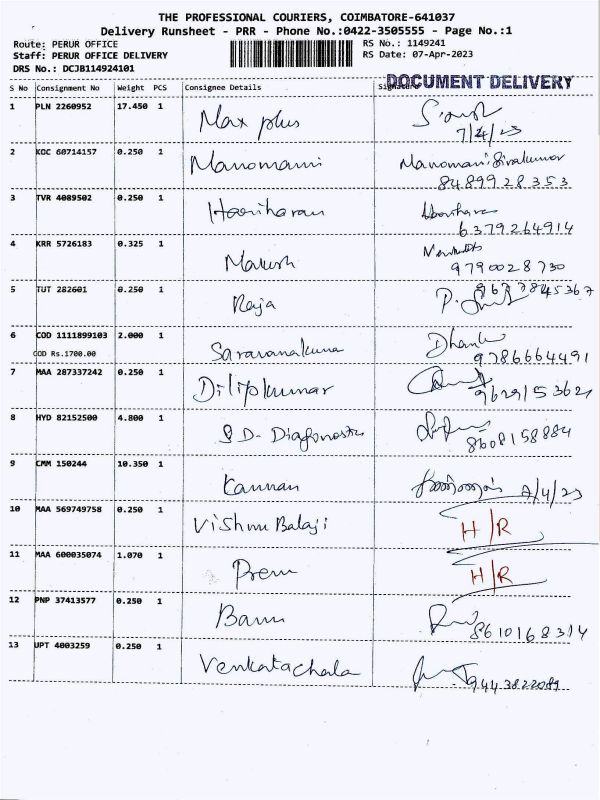 THE PROFESSIONAL COURIERS, COIMBATORE-641037
Delivery Runsheet - PRR - Phone No.:0422-3505555 - Page No.:1
Route: PERUR OFFICE RS No.: 1149241
Staff: PERUR OFFICE DELIVERY RS Date: 07-Apr-2023
DRS No.: DCJB114924101
DOCUMENT DELIVERY
S No Consignment No Weight PCS Consignee Details Signature
1 PLN 2260952 17.450 1 Max plus
7/4/23
2 KOC 60714157 0.250 1 Manomani Manomani Sivakumar
8489928353
3 TVR 4089502 0.250 1 Hariharan
6379264914
4 KRR 5726183 0.325 1 Makesh
9790028730
5 TUT 282601 0.250 1 Raja 9677845367
6 COD 1111899103 2.000 1 Saravanakuma
COD Rs.1700.00 9786664491
7 MAA 287337242 0.250 1 Dilipkumar
9629153621
8 HYD 82152500 4.800 1 S D- Diagonostic
8608158884
9 CMM 150244 10.350 1 Kannan 7/4/23
10 MAA 569749758 0.250 1 Vishnu Balaji H/R
11 MAA 600035074 1.070 1 Prem H/R
12 PNP 37413577 0.250 1 Banu
8610168314
13 UPT 4003259 0.250 1 Venkatachala
9443822089